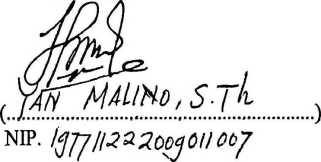 (YAN MALINO, S.Th)
NIP. 197711222009011007